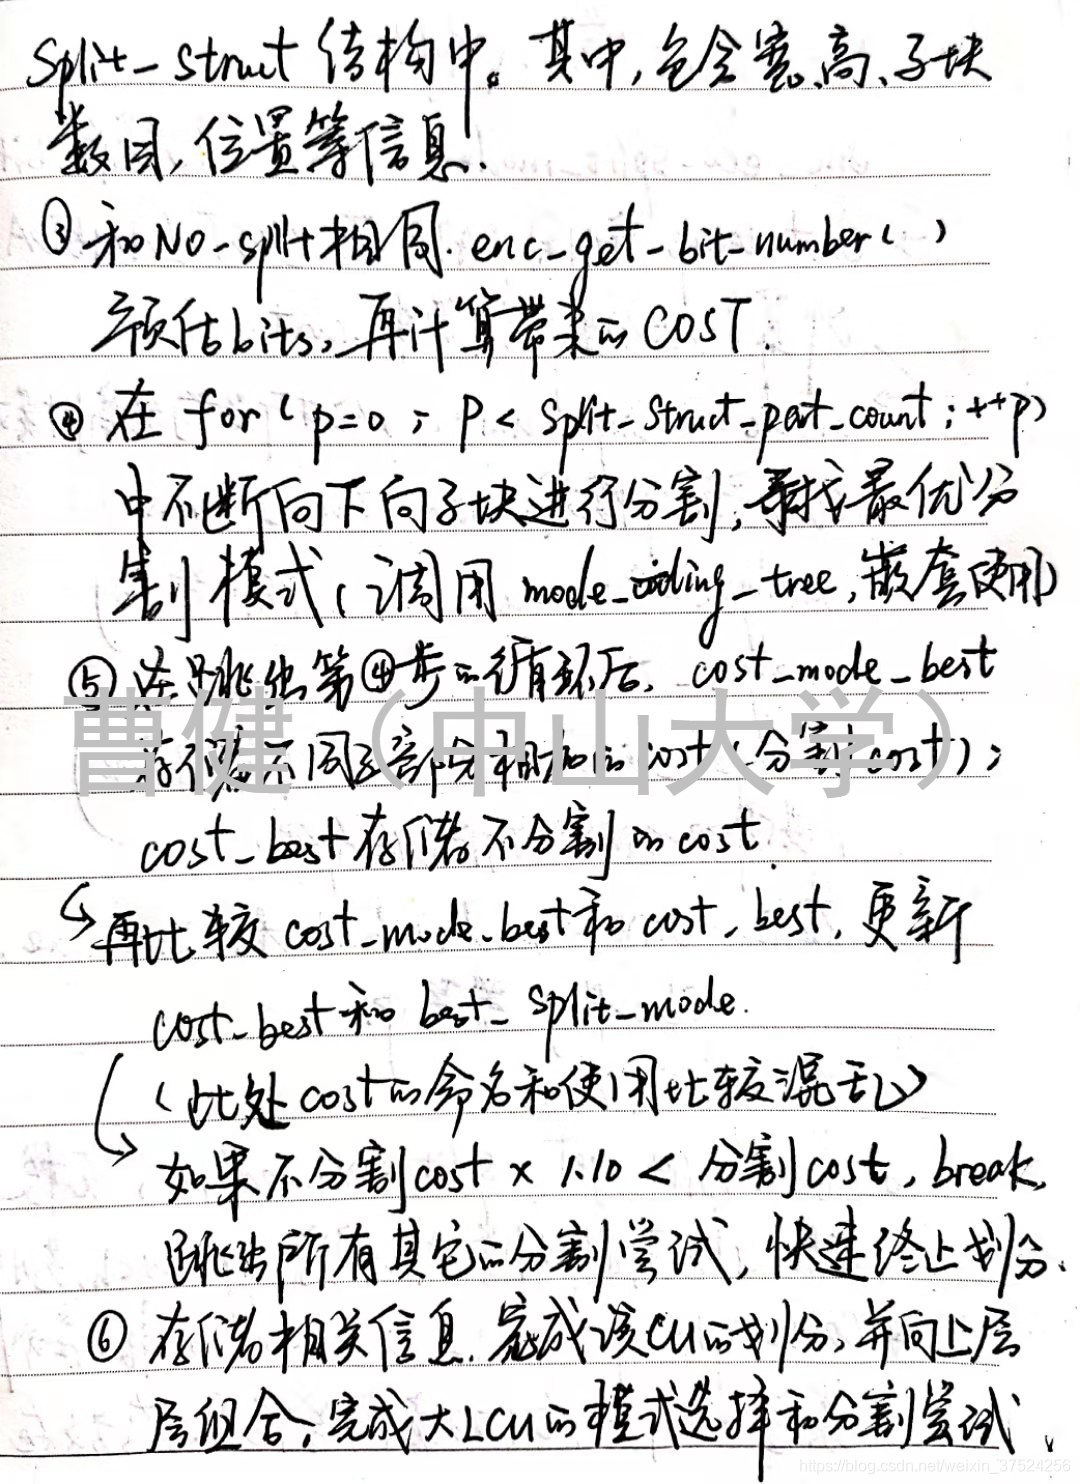 Split-struct 结构中。其中,包含宽、高、子块
数目,位置等信息.
③ 和NO-split相同. enc-get-bit-number( )
预估bits,再计算带来的COST.
④ 在 for (p=0; P< split-struct-part-count; ++p)
中不断向下向子块进行分割,寻找最优分
割模式(调用 mode_coding_tree,嵌套使用)
⑤ 在跳出第④步的循环后, cost_mode_best
存储不同子部分相加的cost(分割cost);
cost_best存储着不分割的cost.
再比较 cost_mode_best和 cost_best,更新
cost_best和 best_split_mode.
(此处cost的命名和使用比较混乱)
如果不分割cost × 1.10 < 分割cost, break,
跳出所有其它的分割尝试,快速终止划分.
⑥ 存储相关信息.完成该CU的划分,并向上层
层组合,完成大LCU的模式选择和分割尝试
曹健(中山大学)
https://blog.csdn.net/weixin_37524256